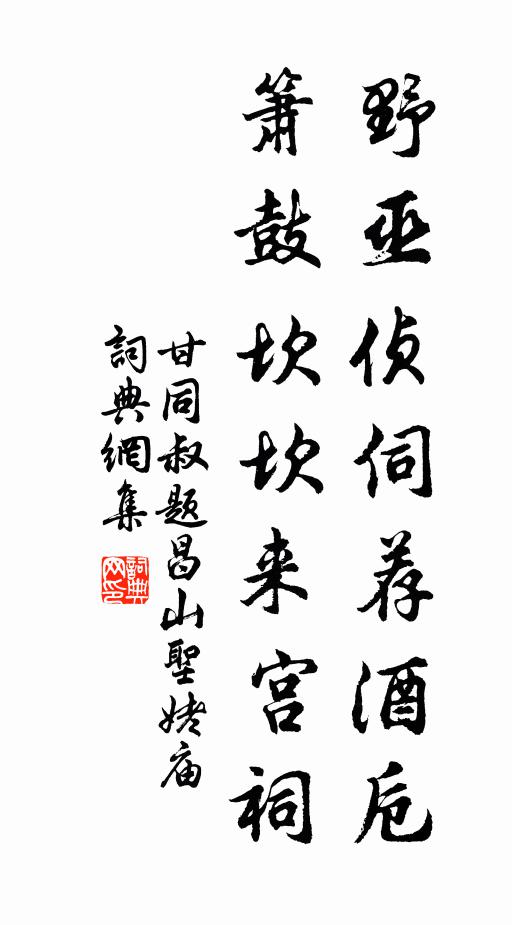 野巫侦伺荐酒卮
箫鼓坎坎来宫祠
甘同叔题昌山聖姥庙
詞典網集
詞典网印